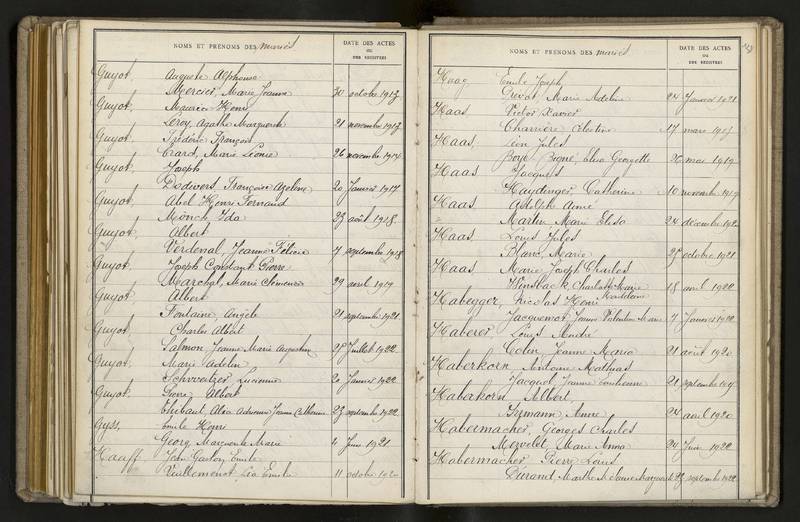 NOMS ET PRÉNOMS DES mariés
DATE DES ACTES
OU
DES REGISTRES
Guyot, Auguste Alphonse
Mercier, Marie Jeanne 30 octobre 1913
Guyot, Maurice Henri
Leroy, Agathe Marguerite 21 novembre 1913
Guyot, Frédéric François
Erard, Marie Léonie 26 novembre 1914
Guyot, Joseph
Françoise 20 Janvier 1917
Guyot, Abel Henri Fernand
Mönch, Ida 29 août 1918
Guyot, Albert
Verdenal, Jeanne Félicie 7 septembre 1918
Guyot, Joseph Constant Pierre
Marchal, Marie 29 avril 1919
Guyot, Albert
Fontaine, Angèle 21 septembre 1921
Guyot, Charles Albert
Salmon, Jeanne Marie Augustine 29 Juillet 1922
Guyot, Marie Adelin
Schweitzer, Lucienne 20 Janvier 1922
Guyot, Pierre Albert
Thibaut, Alice Adrienne Jeanne Catherine 23 septembre 1922
Gyss, Emile Henri
Georg, Marguerite Marie 4 Juin 1921
Haaff, Jean Gaston Emile
Vuillemenot, Léa Emilie 11 octobre 1920
NOMS ET PRÉNOMS DES mariés
DATE DES ACTES
OU
DES REGISTRES
Haag, Emile Joseph
Marie Adeline 24 Janvier 1921
Haas, Victor Xavier
Charrière, Célestine 17 mars 1917
Haas, Léon Jules
Elisa Georgette 26 mai 1919
Haas, Jacques
Haydinger, Catherine 10 novembre 1919
Haas, Adolph Aimé
Martin, Marie Elisa 24 décembre 1920
Haas, Louis Jules
Blanc, Marie 27 octobre 1921
Haas, Marie Joseph Charles
Winsback, Charlotte Marie Magdeleine 18 avril 1922
Habegger, Nicolas Henri
Jacquemot, Jeanne Valentine Marie 7 Janvier 1922
Haberer, Louis André
Colin, Jeanne Maria 21 août 1920
Haberkorn, Antoine Mathias
Jacquot, Jeanne 21 septembre 1917
Haberkorn, Albert
Izmann, Anne 24 avril 1920
Habermacher, Georges Charles
Mervelet, Marie Anna 24 Juin 1922
Habermacher, Pierre Louis
Durand, Marthe Mélanie Marguerite 23 septembre 1922